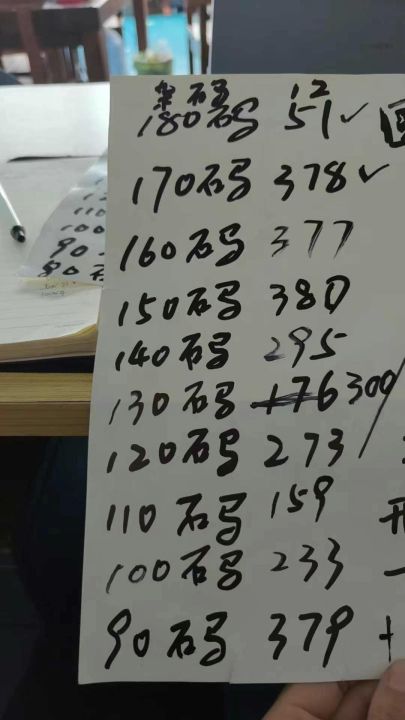 石码 12
180石码 51✓
170石码 378✓
160石码 377
150石码 380
140石码 295
130石码 176 300
120石码 273
110石码 159
100石码 233
90石码 379 +